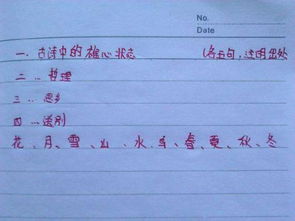 No.
Date
一、古诗中的雄心状态 (各五句,注明出处
二 、、哲理
三 、、思乡
四 、、送别
花、月、雪、山、水、春、夏、秋、冬